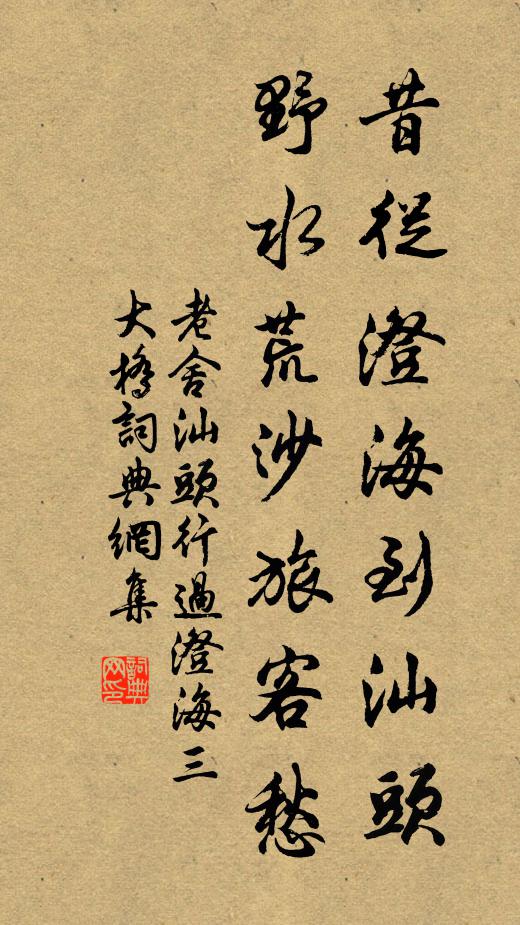 昔從澄海到汕頭
野水荒沙旅客愁
老舍汕頭行過澄海三
大橋詞典網集
詞典网印